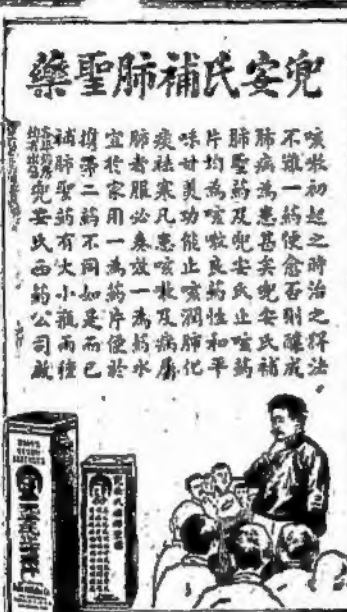 兜安氏補肺聖藥
咳嗽初起之時治之得法
不難一藥便愈否則釀成
肺病為患甚矣兜安氏補
肺聖藥及兜安氏止嗽藥
片均為咳嗽良藥性和平
味甘美功能止咳潤肺化
痰祛寒凡患咳嗽及病屬
肺者服必奏效一為藥水
宜於家用一為藥片便於
携帶二藥不同如是而已
補肺聖藥有大小瓶兩種
兜安氏西藥公司啟